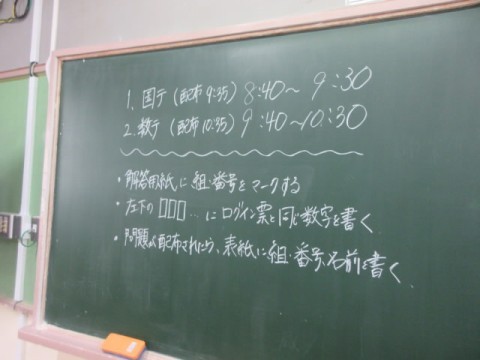 1. 国テ (配布 9:35) 8:40〜9:30
2. 数テ (配布 10:35) 9:40〜10:30
・解答用紙に組・番号をマークする
・左下の□□□…にログイン票と同じ数字を書く
・問題が配布されたら、表紙に組・番号、名前を書く.